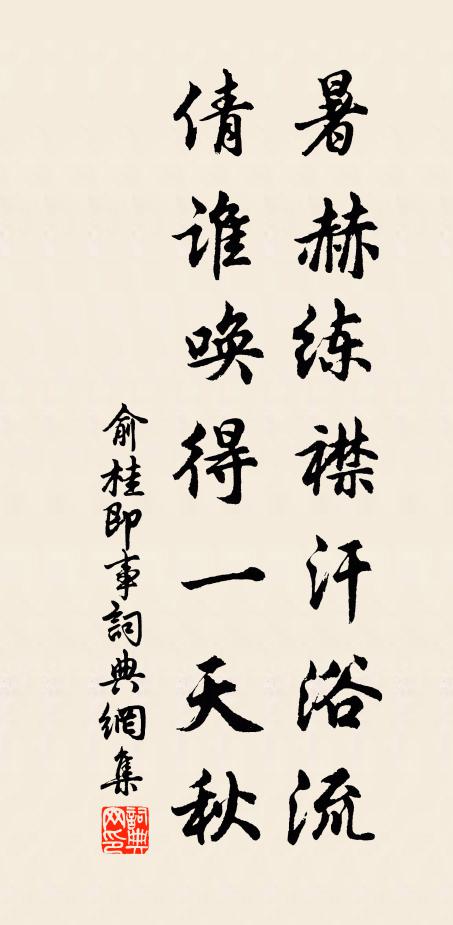 暑赫练襟汗浴流
倩谁唤得一天秋
俞桂即事詞典網集
詞典网印